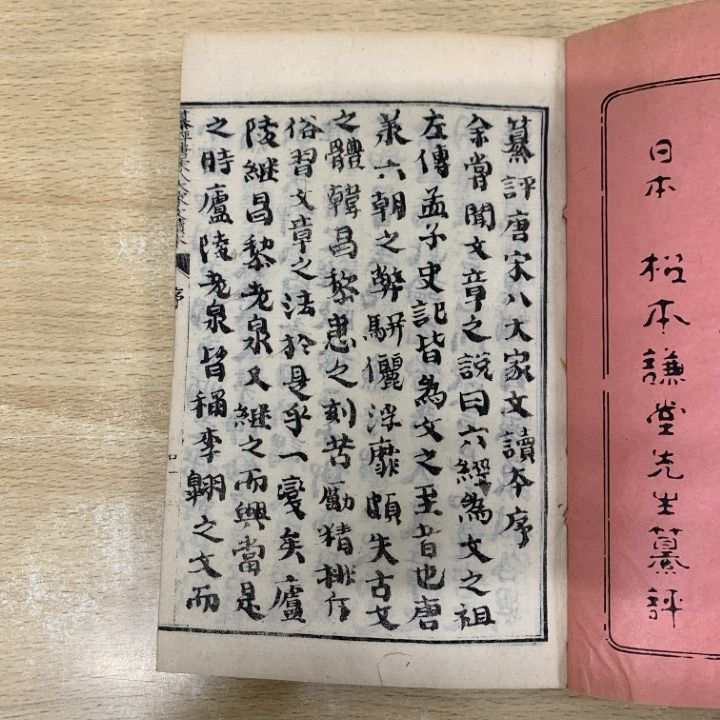 日本 松本謙堂先生纂評
纂評唐宋八大家文讀本序
余嘗聞文章之說曰六經為文之祖
左傳孟子史記皆為文之至者也唐
承六朝之弊駢儷浮靡頗失古文
之體韓昌黎患之刻苦勵精排斥
俗習文章之法於是乎一變矣廬
陵繼昌黎老泉又繼之而興當是
之時廬陵老泉皆稱李翺之文而
序